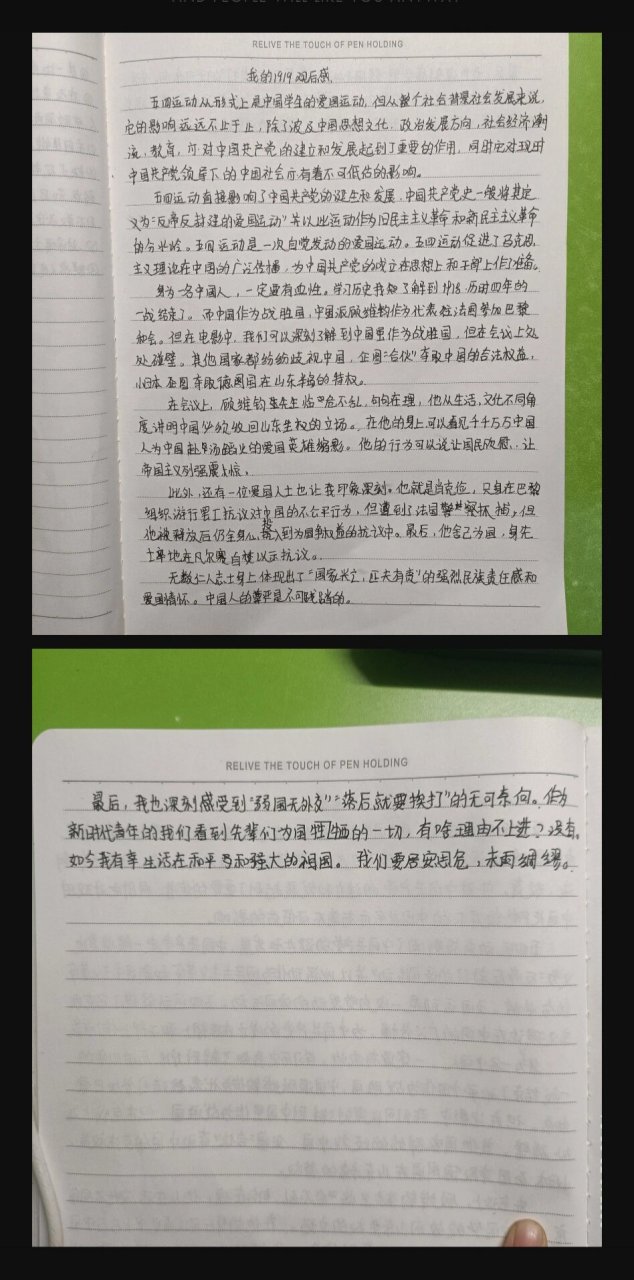 RELIVE THE TOUCH OF PEN HOLDING
我的1919观后感
五四运动从形式上是中国学生的爱国运动,但从整个社会背景社会发展来说,
它的影响远远不止于止,除了波及中国思想文化,政治发展方向,社会经济潮
流,教育,可对中国共产党的建立和发展起到了重要的作用,同时它对现时
中国共产党领导下的中国社会亦有着不可低估的影响。
五四运动直接影响了中国共产党的诞生和发展,中国共产党史一般将其定
义为"反帝反封建的爱国运动"并以此运动作为旧民主主义革命和新民主主义革命
的分水岭。五四运动是一次自觉发动的爱国运动。五四运动促进了马克思
主义理论在中国的广泛传播,为中国共产党的成立在思想上和干部上作了准备。
身为一名中国人,一定要有血性。学习历史我知了解到1918,历时四年的
一战结束了。而中国作为战胜国,中国派顾维钧作为代表在法国参加巴黎
和会。但在电影中,我们可以深刻了解到中国虽作为战胜国,但在会议上处
处碰壁。其他国家都纷纷歧视中国,企图"合伙"夺取中国的合法权益,
小日本企图夺取德国在山东半岛的特权。
在会议上,顾维钧先生临危不乱,句句在理,他从生活,文化不同角
度讲明中国必须收回山东主权的立场。在他的身上可以看见千千万万中国
人为中国赴汤蹈火的爱国英雄缩影。他的行为可以说让国民欣慰,让
帝国主义列强震惊。
此外,还有一位爱国人士也让我印象深刻,他就是肖克俭,只身在巴黎
组织游行罢工抗议对中国的不公平行为,但遭到了法国警察抓捕,但
他被释放后仍全身心投入到为国争权益的抗议中。最后,他舍己为国,身先
士卒地在凡尔赛自焚以示抗议。
无数仁人志士身上体现出了"国家兴亡,匹夫有责"的强烈民族责任感和
爱国情怀。中国人的尊严是不可践踏的。
RELIVE THE TOUCH OF PEN HOLDING
最后,我也深刻感受到"弱国无外交""落后就要挨打"的无可奈何。作为
新时代青年的我们看到先辈们为国牺牲的一切,有啥理由不上进?没有。
如今我有幸生活在和平与和强大的祖国。我们要居安思危,未雨绸缪。